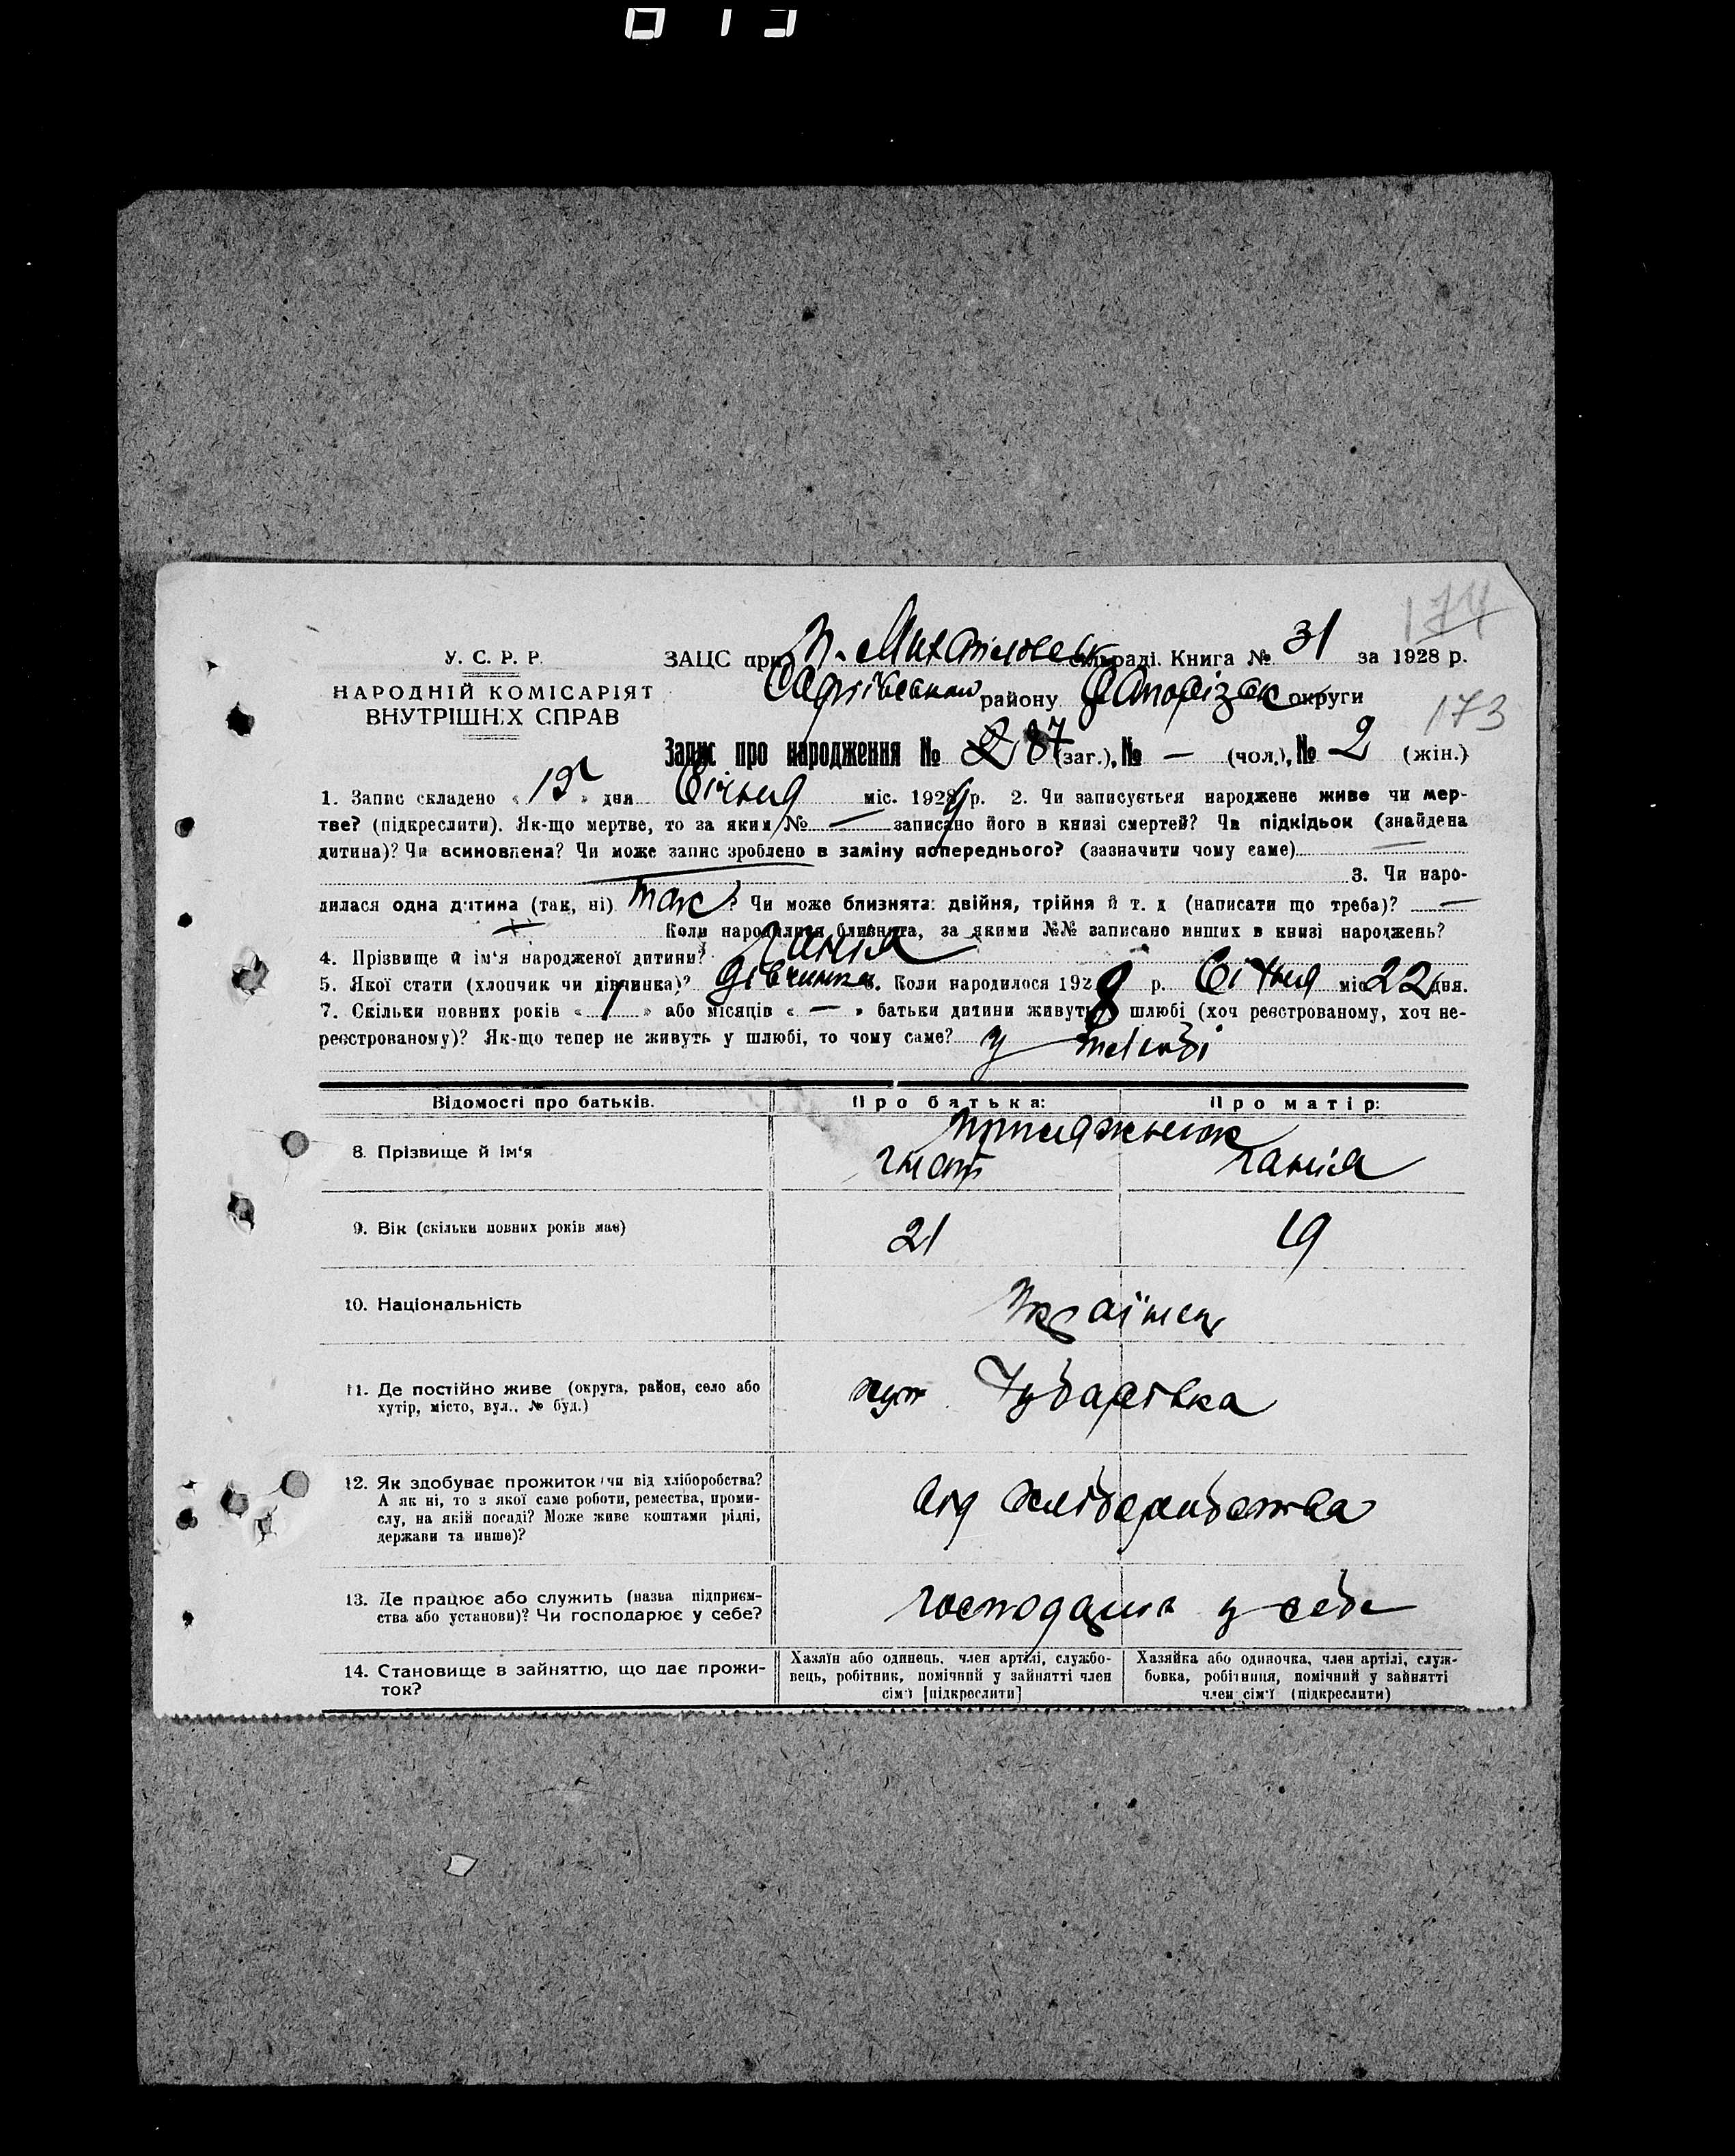 У. С. Р. Р.
НАРОДНІЙ КОМІСАРІЯТ
ВНУТРІШНІХ СПРАВ
174
ЗАЦС при Н. Михайловськ сільраді. Книга № 31 за 1928 р.
району Запорізьк округи
173
Запис про народження № 87 (заг.), № — (чол.), № 2 (жін.)
1. Запис складено « » дня Січня міс. 1928 р. 2. Чи записується народжене живе чи мер-
тве? (підкреслити). Як-що мертве, то за яким № — записано його в книзі смертей? Чи підкідьок (знайдена
дитина)? Чи всиновлена? Чи може запис зроблено в заміну попереднього? (зазначити чому саме) —
3. Чи наро-
дилася одна дитина (так, ні) так? Чи може близнята: двійня, трійня й т. д (написати що треба)? —
Коли народилися близнята, за якими №№ записано инших в книзі народжень?
4. Прізвище й ім‘я народженої дитини? Ганна
5. Якої стати (хлопчик чи дівчинка)? дівчинка 6. Коли народилося 192 р. Січня міс 22 дня.
7. Скільки повних років « 1 » або місяців « — » батьки дитини живуть у шлюбі (хоч реєстрованому, хоч не-
реєстрованому)? Як-що тепер не живуть у шлюбі, то чому саме? у шлюбі
Відомості про батьків. Про батька: Про матір:
8. Прізвище й ім‘я
Гнат Ганна
9. Вік (скільки повних років має) 21 19
10. Національність Українец
11. Де постійно живе (округа, район, село або
хутір, місто, вул., № буд.)
хут Чубарівка
12. Як здобуває прожиток (чи від хліборобства?
А як ні, то з якої саме роботи, ремества, проми-
слу, на якій посаді? Може живе коштами рідні,
держави та инше)?
від хліборобства
13. Де працює або служить (назва підприєм-
ства або установи)? Чи господарює у себе?
у себе
14. Становище в зайняттю, що дає прожи-
ток?
Хазяїн або одинець, член артілі, службо-
вець, робітник, помічний у зайнятті член
сім‘ї [підкреслити]
Хазяйка або одиночка, член артілі, служ-
бовка, робітниця, помічний у зайнятті
член сім‘ї (підкреслити)